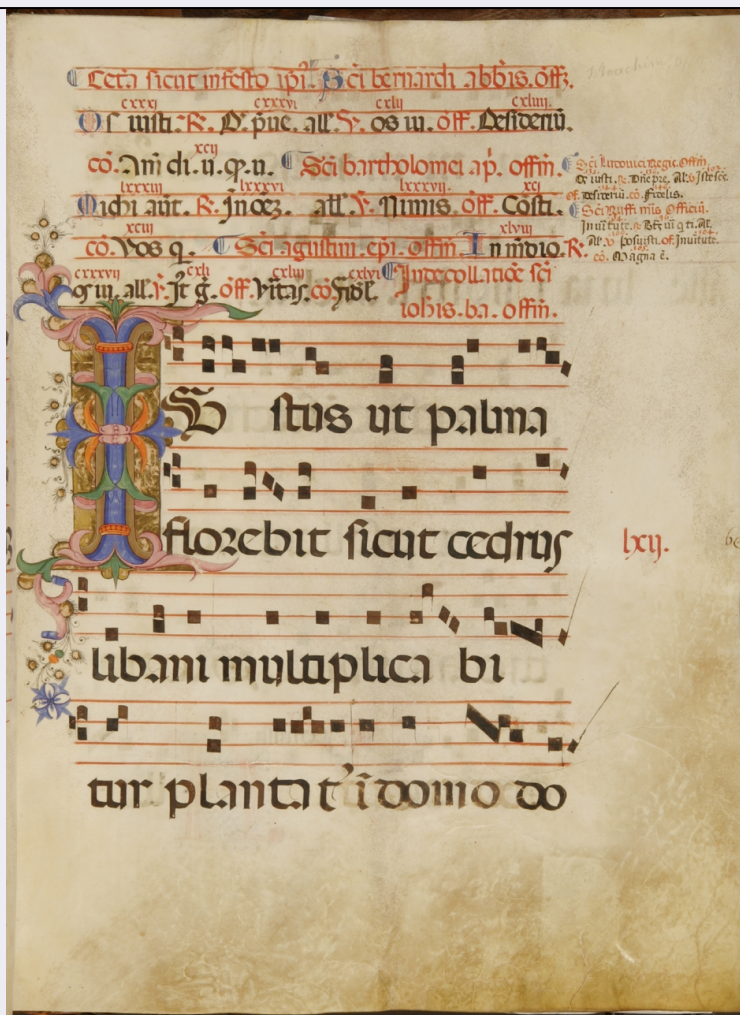 Cetā sicut in festo ipī. Sci bernardi abbīs. off̄.
cxxxj cxxxvj cxlij cxliiij
Os iusti. R. D. p̄ue. all̄. V. os iu. off̄. Desideriū.
xcij
cō. Am̄ di. u. q. u. Sci bartholomei ap̄. offm̄.
lxxxiij lxxxvj lxxxvij. xcj
Michi aut̄. R. In oēz. all̄. V. Nimis. off̄. Cōsti.
xciij xlviij
cō. Vos q. Sci agustini. epī. offm̄. In m̄dio. R.
cxxxvij cxlj cxliij cxlvj
os iu. all̄. V. It̄ g̅. off̄. Vītas. cō. Fidel̄.
In decollatiōe sci
iohis. ba. offm̄.
Sci Ludovici Regis. Offm̄.
Os iusti. R. Dn̄e p̄ue. Al. V. Iste sc̄e.
of. desideriū. cō. Fidelis.
Sci Ruffi m̄is Officiū.
In uītute. R. Bt̄ ui q ti. At.
Al. V. posuisti. of. In uītute.
cō. Magna ē.
IVstus ut palma
florebit sicut cedrus
lxij.
libani multiplica bi
tur plantat' ī domo do